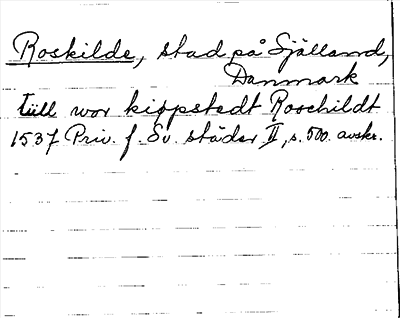 Roskilde, stad på Själland,
Danmark
tüll wor kiøpstedt Roschildt
1537 Priv. f. Sv. städer II, s. 500. avskr.